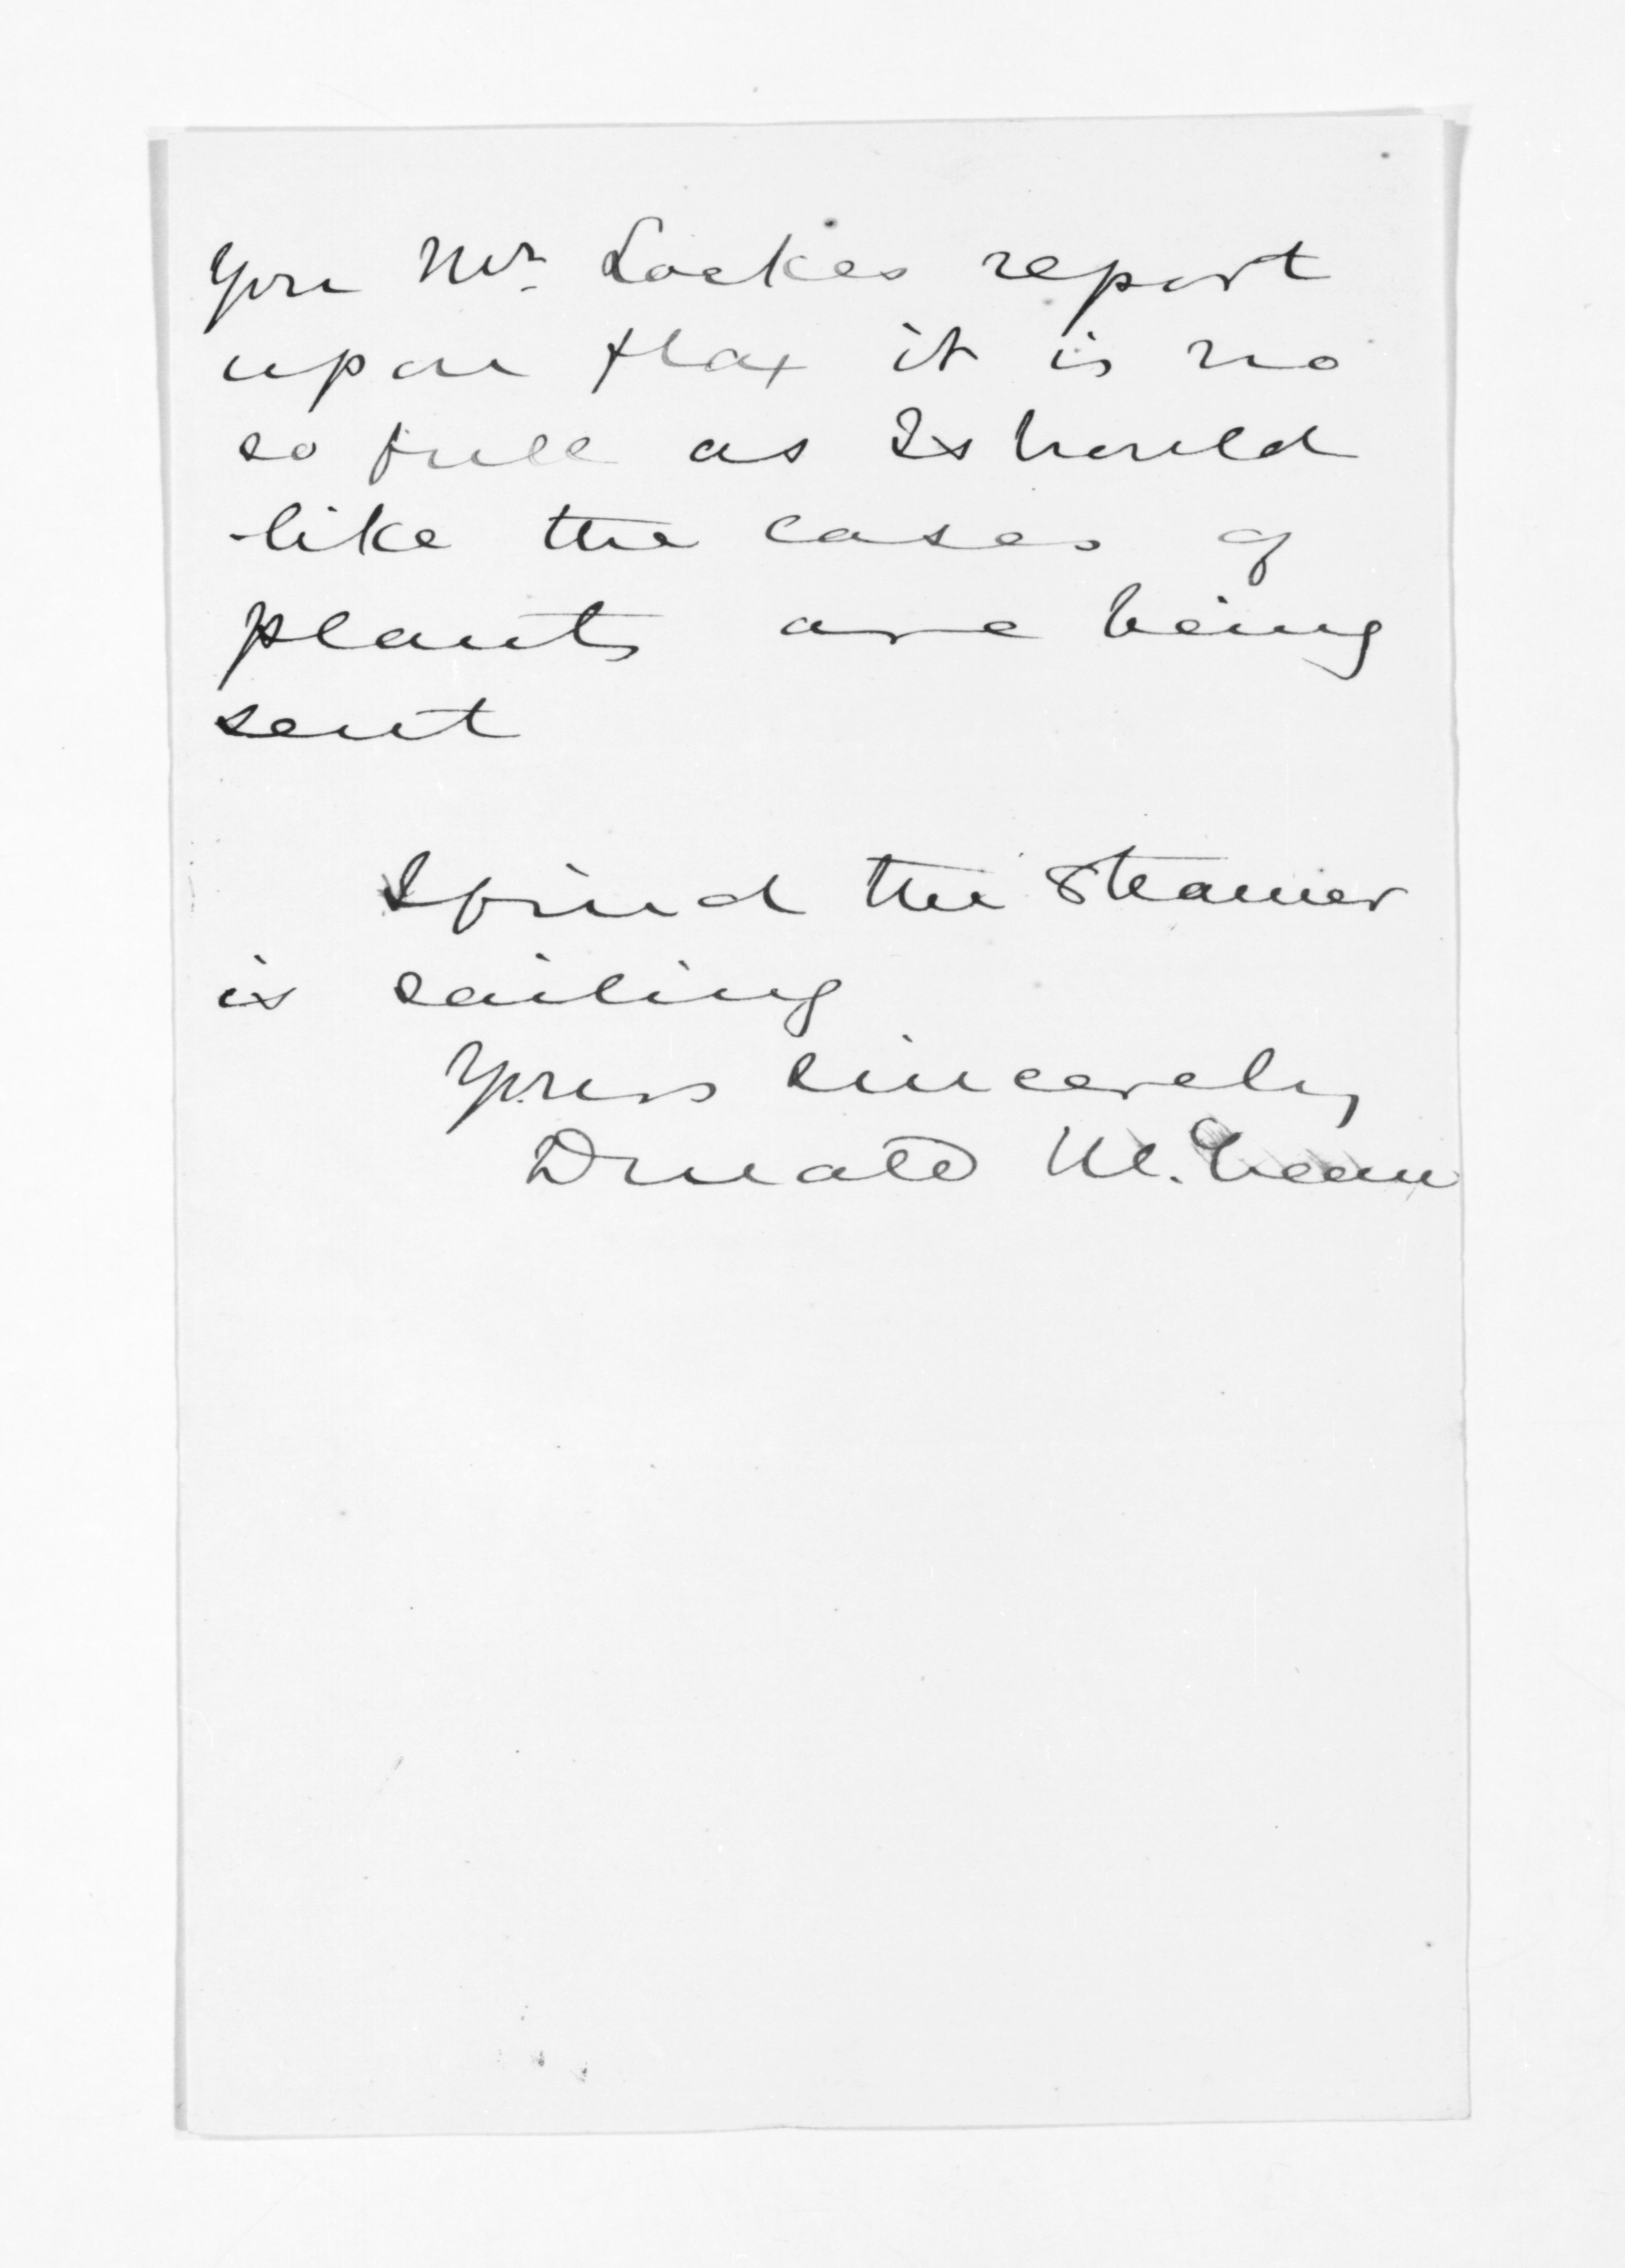 you Mr. Lockes report
upon flax it is no
so full as I should
like the cases of
plants are being
sent
I find the Steamer
is sailing
Yours sincerely
Donald McLean